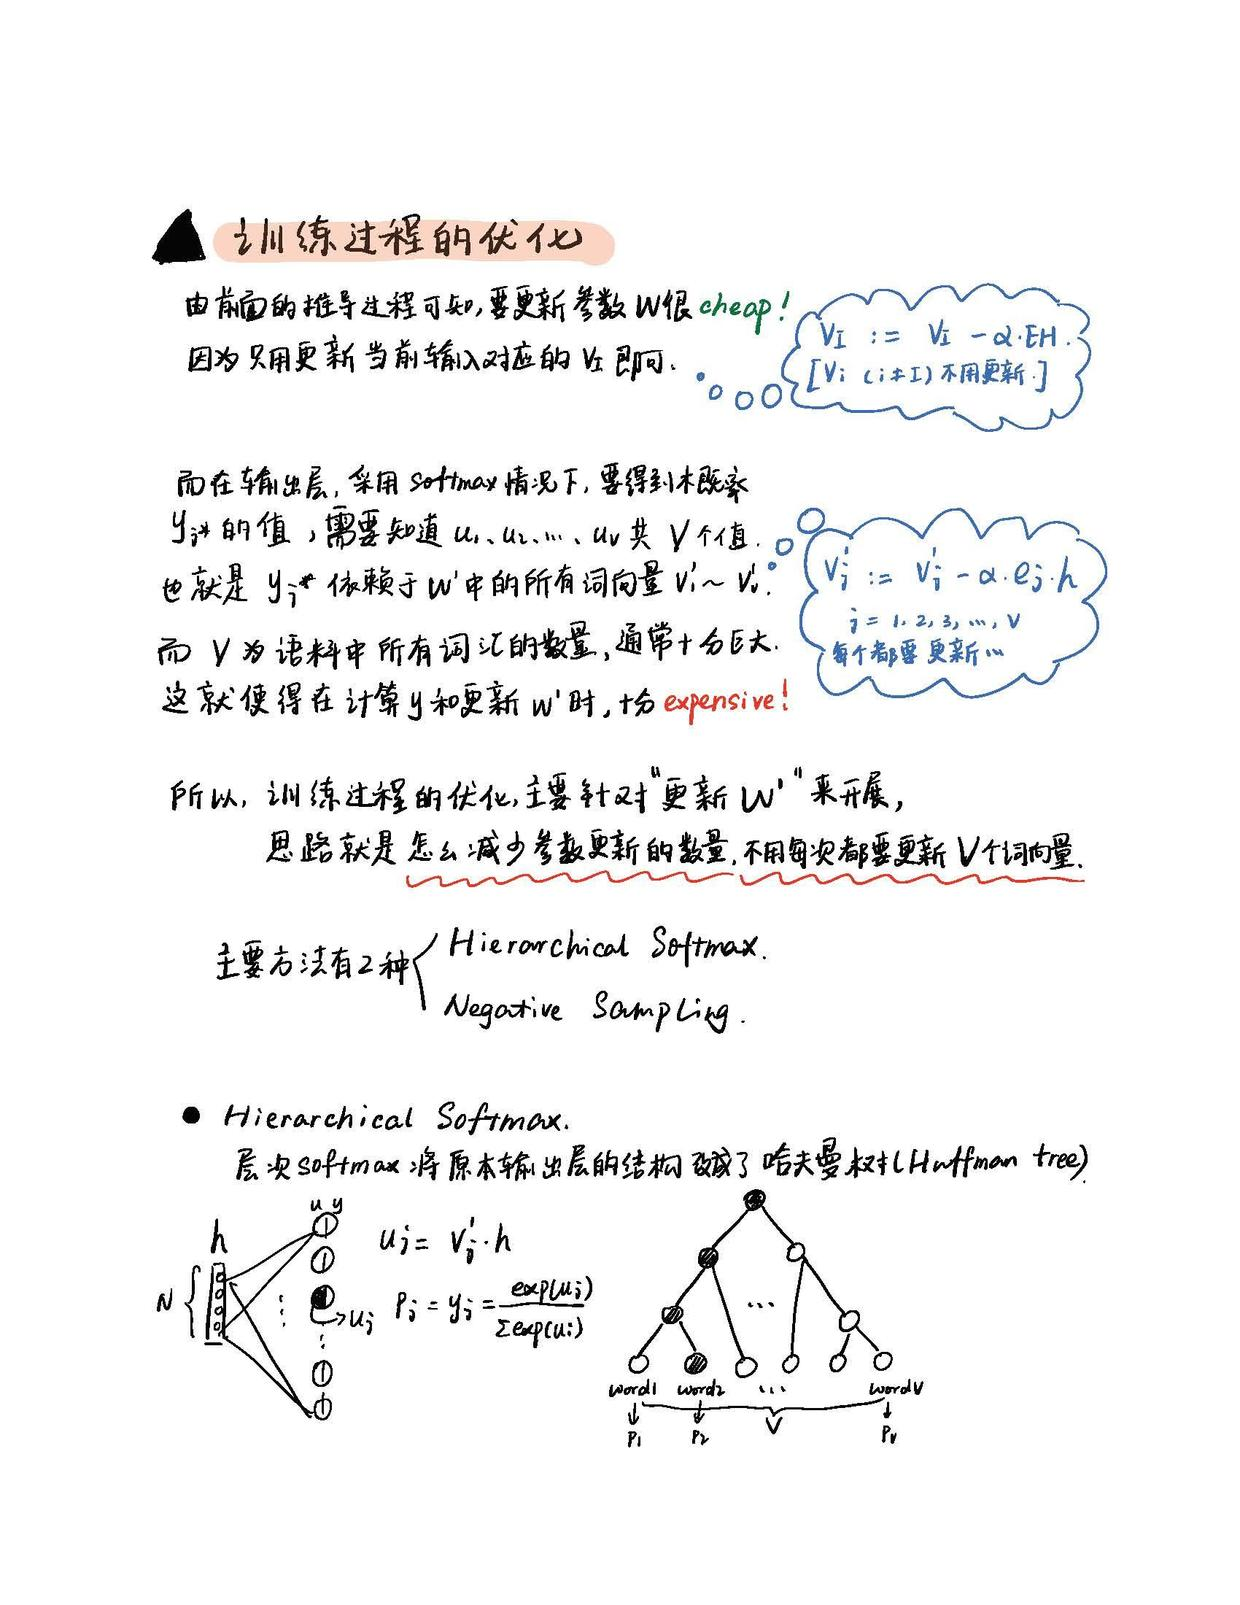 ▲ 训练过程的优化
由前面的推导过程可知,要更新参数W很cheap!
因为只用更新当前输入对应的 V_I 即可.
V_I := V_I - α·EH.
[V_i (i≠I) 不用更新.]
而在输出层,采用softmax情况下,要得到木既率
y_j* 的值,需要知道 u_1、u_2、…、u_V 共 V个值.
也就是 y_j* 依赖于W'中的所有词向量 V'_1 ~ V'_V.
而 V 为语料中所有词汇的数量,通常十分巨大.
这就使得在计算y和更新W'时,十分expensive!
V'_j := V'_j - α·e_j·h
j = 1, 2, 3, …, V
每个都要更新…
所以,训练过程的优化,主要针对"更新W'"来开展,
思路就是怎么减少参数更新的数量,不用每次都要更新V个词向量.
主要方法有2种
Hierarchical Softmax.
Negative Sampling.
● Hierarchical Softmax.
层次softmax将原本输出层的结构改成了哈夫曼树(Huffman tree)
u y
h
N
u_j
u_j = V'_j·h
P_j = y_j = exp(u_j) / Σexp(u_i)
...
word1 word2 ... wordV
V
P_1 P_2 P_V